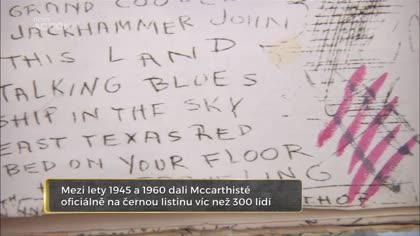 GRAND COULEE
JACKHAMMER JOHN
THIS LAND
TALKING BLUES
SHIP IN THE SKY
EAST TEXAS RED
BED ON YOUR FLOOR
Mezi lety 1945 a 1960 dali Mccarthisté
oficiálně na černou listinu víc než 300 lidí